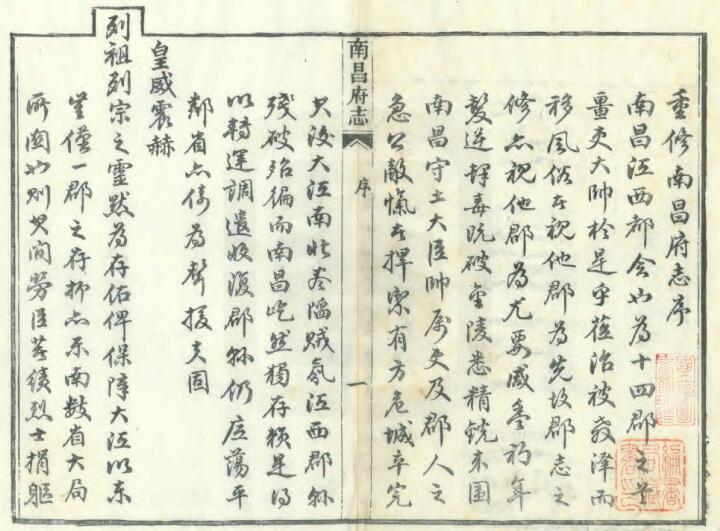 重修南昌府志序
南昌江西都會也為十四郡之首
畺吏大帥於是乎蒞治被教澤而
移風俗者視他郡為先故郡志之
修亦視他郡為尤要咸豐初年
髮逆毒既破金陵悉精銳來圍
南昌守土大臣帥屬吏及郡人之
急公敵愾者捍禦有方危城卒完
南昌府志
序
一
其後大江南北陷賊氛江西郡縣
殘破殆徧而南昌屹然獨存賴是得
以轉運調遣收復郡縣仍底蕩平
鄰省亦倚為聲援夫固
皇威震赫
列祖列宗之靈默為存佑俾保障大江以東
豈僅一郡之存抑亦東南數省大局
所關也則其間勞臣藎績烈士捐軀